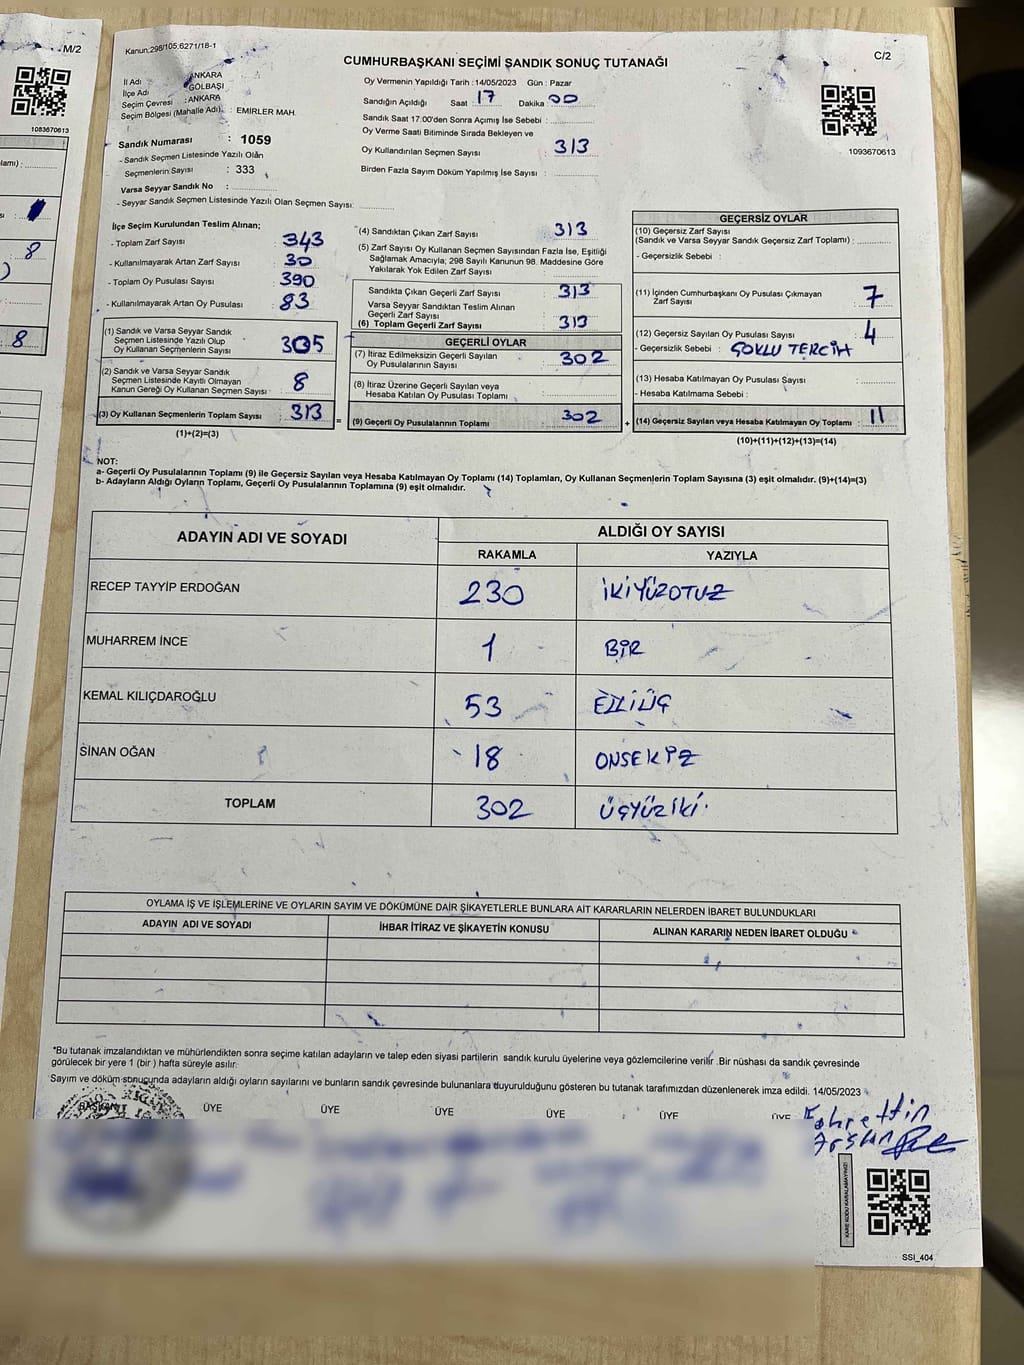 M/2
1083670613
8
8
Kanun:298/105;6271/18-1
CUMHURBAŞKANI SEÇİMİ SANDIK SONUÇ TUTANAĞI
C/2
1093670613
İl Adı : ANKARA
İlçe Adı : GÖLBAŞI
Seçim Çevresi : ANKARA
Seçim Bölgesi (Mahalle Adı) : EMİRLER MAH.
Sandık Numarası : 1059
- Sandık Seçmen Listesinde Yazılı Olan
Seçmenlerin Sayısı : 333
Varsa Seyyar Sandık No :
- Seyyar Sandık Seçmen Listesinde Yazılı Olan Seçmen Sayısı:
Oy Vermenin Yapıldığı Tarih :14/05/2023 Gün : Pazar
Sandığın Açıldığı Saat : 17 Dakika : 00
Sandık Saat 17:00'den Sonra Açımış İse Sebebi :
Oy Verme Saati Bitiminde Sırada Bekleyen ve
Oy Kullandırılan Seçmen Sayısı : 313
Birden Fazla Sayım Döküm Yapılmış İse Sayısı :
İlçe Seçim Kurulundan Teslim Alınan;
- Toplam Zarf Sayısı : 343
- Kullanılmayarak Artan Zarf Sayısı : 30
- Toplam Oy Pusulası Sayısı : 390
- Kullanılmayarak Artan Oy Pusulası : 83
(1) Sandık ve Varsa Seyyar Sandık
Seçmen Listesinde Yazılı Olup
Oy Kullanan Seçmenlerin Sayısı : 305
(2) Sandık ve Varsa Seyyar Sandık
Seçmen Listesinde Kayıtlı Olmayan
Kanun Gereği Oy Kullanan Seçmen Sayısı : 8
(3) Oy Kullanan Seçmenlerin Toplam Sayısı : 313 =
(1)+(2)=(3)
(4) Sandıktan Çıkan Zarf Sayısı : 313
(5) Zarf Sayısı Oy Kullanan Seçmen Sayısından Fazla İse, Eşitliği
Sağlamak Amacıyla; 298 Sayılı Kanunun 98. Maddesine Göre
Yakılarak Yok Edilen Zarf Sayısı :
Sandıkta Çıkan Geçerli Zarf Sayısı : 313
Varsa Seyyar Sandıktan Teslim Alınan
Geçerli Zarf Sayısı :
(6) Toplam Geçerli Zarf Sayısı : 313
GEÇERLİ OYLAR
(7) İtiraz Edilmeksizin Geçerli Sayılan
Oy Pusulalarının Sayısı : 302
(8) İtiraz Üzerine Geçerli Sayılan veya
Hesaba Katılan Oy Pusulası Toplamı :
(9) Geçerli Oy Pusulalarının Toplamı : 302 +
GEÇERSİZ OYLAR
(10) Geçersiz Zarf Sayısı
(Sandık ve Varsa Seyyar Sandık Geçersiz Zarf Toplamı) :
- Geçersizlik Sebebi :
(11) İçinden Cumhurbaşkanı Oy Pusulası Çıkmayan
Zarf Sayısı : 7
(12) Geçersiz Sayılan Oy Pusulası Sayısı : 4
- Geçersizlik Sebebi : ÇOKLU TERCİH
(13) Hesaba Katılmayan Oy Pusulası Sayısı :
- Hesaba Katılmama Sebebi :
(14) Geçersiz Sayılan veya Hesaba Katılmayan Oy Toplamı : 11
(10)+(11)+(12)+(13)=(14)
NOT:
a- Geçerli Oy Pusulalarının Toplamı (9) ile Geçersiz Sayılan veya Hesaba Katılmayan Oy Toplamı (14) Toplamları, Oy Kullanan Seçmenlerin Toplam Sayısına (3) eşit olmalıdır. (9)+(14)=(3)
b- Adayların Aldığı Oyların Toplamı, Geçerli Oy Pusulalarının Toplamına (9) eşit olmalıdır.
ADAYIN ADI VE SOYADI
ALDIĞI OY SAYISI
RAKAMLA YAZIYLA
RECEP TAYYİP ERDOĞAN 230 İKİYÜZOTUZ
MUHARREM İNCE 1 BİR
KEMAL KILIÇDAROĞLU 53 ELLİÜÇ
SİNAN OĞAN 18 ONSEKİZ
TOPLAM 302 ÜÇYÜZİKİ
OYLAMA İŞ VE İŞLEMLERİNE VE OYLARIN SAYIM VE DÖKÜMÜNE DAİR ŞİKAYETLERLE BUNLARA AİT KARARLARIN NELERDEN İBARET BULUNDUKLARI
ADAYIN ADI VE SOYADI İHBAR İTİRAZ VE ŞİKAYETİN KONUSU ALINAN KARARIN NEDEN İBARET OLDUĞU
*Bu tutanak imzalandıktan ve mühürlendikten sonra seçime katılan adayların ve talep eden siyasi partilerin sandık kurulu üyelerine veya gözlemcilerine verilir .Bir nüshası da sandık çevresinde
görülecek bir yere 1 (bir ) hafta süreyle asılır.
Sayım ve döküm sonucunda adayların aldığı oyların sayılarını ve bunların sandık çevresinde bulunanlara duyurulduğunu gösteren bu tutanak tarafımızdan düzenlenerek imza edildi. 14/05/2023
BAŞKAN ÜYE ÜYE ÜYE ÜYE ÜYE ÜYE
Fahrettin
Arslan
KARE KODU KARALAMAYINIZ!
SSI_404